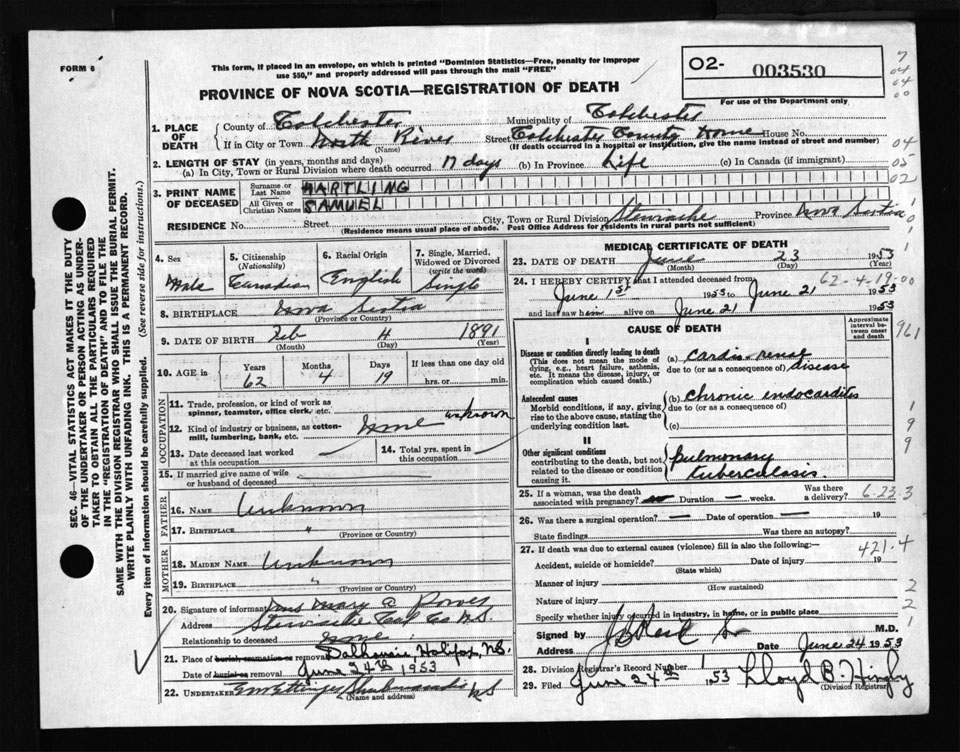 FORM 6
This form, if placed in an envelope, on which is printed "Dominion Statistics—Free, penalty for improper
use $50," and properly addressed will pass through the mail "FREE"
02- 003530
For use of the Department only
PROVINCE OF NOVA SCOTIA—REGISTRATION OF DEATH
1. PLACE OF DEATH
County of Colchester Municipality of Colchester
If in City or Town North River Street Colchester County Home House No.
(Name) (If death occurred in a hospital or institution, give the name instead of street and number)
2. LENGTH OF STAY (in years, months and days)
(a) In City, Town or Rural Division where death occurred 17 days (b) In Province Life (c) In Canada (if immigrant)
3. PRINT NAME OF DECEASED
Surname or Last Name HARTLING
All Given or Christian Names SAMUEL
RESIDENCE No. Street City, Town or Rural Division Stewiacke Province Nova Scotia
(Residence means usual place of abode. Post Office Address for residents in rural parts not sufficient)
4. Sex Male
5. Citizenship (Nationality) Canadian
6. Racial Origin English
7. Single, Married, Widowed or Divorced (write the word) Single
8. BIRTHPLACE Nova Scotia
(Province or Country)
9. DATE OF BIRTH Feb 4 1891
(Month) (Day) (Year)
10. AGE in Years 62 Months 4 Days 19 If less than one day
hrs. or min.
OCCUPATION
11. Trade, profession, or kind of work as
spinner, teamster, office clerk, etc. unknown
12. Kind of industry or business, as cotton-
mill, lumbering, bank, etc. None
13. Date deceased last worked at this occupation —
14. Total yrs. spent in this occupation —
15. If married give name of wife
or husband of deceased
FATHER
16. NAME Unknown
17. BIRTHPLACE "
(Province or Country)
MOTHER
18. MAIDEN NAME Unknown
19. BIRTHPLACE "
(Province or Country)
20. Signature of informant Mrs Mary
Address Stewiacke Col Co N.S.
Relationship to deceased None
21. Place of burial, cremation or removal Dalhousie, Halifax, N.S.
Date of burial or removal June 24th 1953
22. UNDERTAKER Shubenacadie N S
(Name and address)
MEDICAL CERTIFICATE OF DEATH
23. DATE OF DEATH June 23 1953
(Month) (Day) (Year)
24. I HEREBY CERTIFY that I attended deceased from
June 1st 1953 to June 21 1953
and last saw him alive on June 21 1953
62-4-19-00
CAUSE OF DEATH
Approximate interval between onset and death
I
Disease or condition directly leading to death
(This does not mean the mode of dying, e.g., heart failure, asthenia, etc. It means the disease, injury, or complication which caused death.)
(a) Cardio-renal disease
due to (or as a consequence of)
Antecedent causes
Morbid conditions, if any, giving rise to the above cause, stating the underlying condition last.
(b) Chronic endocarditis
due to (or as a consequence of)
(c)
II
Other significant conditions
contributing to the death, but not related to the disease or condition causing it.
Pulmonary tuberculosis.
25. If a woman, was the death associated with pregnancy? Duration — weeks. Was there a delivery?
6-23-3
26. Was there a surgical operation? — Date of operation — 19
State findings Was there an autopsy?
27. If death was due to external causes (violence) fill in also the following:—
Accident, suicide or homicide? Date of injury 19
(State which)
421.4
Manner of injury
(How sustained)
Nature of injury
Specify whether injury occurred in industry, in home, or in public place
Signed by M.D.
Address Date June 24 1953
28. Division Registrar's Record Number 1
29. Filed June 24th 1953 Lloyd B.
(Division Registrar)
SEC. 46—VITAL STATISTICS ACT MAKES IT THE DUTY
OF THE UNDERTAKER OR PERSON ACTING AS UNDER-
TAKER TO OBTAIN ALL THE PARTICULARS REQUIRED
IN THE "REGISTRATION OF DEATH" AND TO FILE THE
SAME WITH THE DIVISION REGISTRAR WHO SHALL ISSUE THE BURIAL PERMIT.
WRITE PLAINLY WITH UNFADING INK. THIS IS A PERMANENT RECORD.
Every item of information should be carefully supplied. (See reverse side for instructions.)